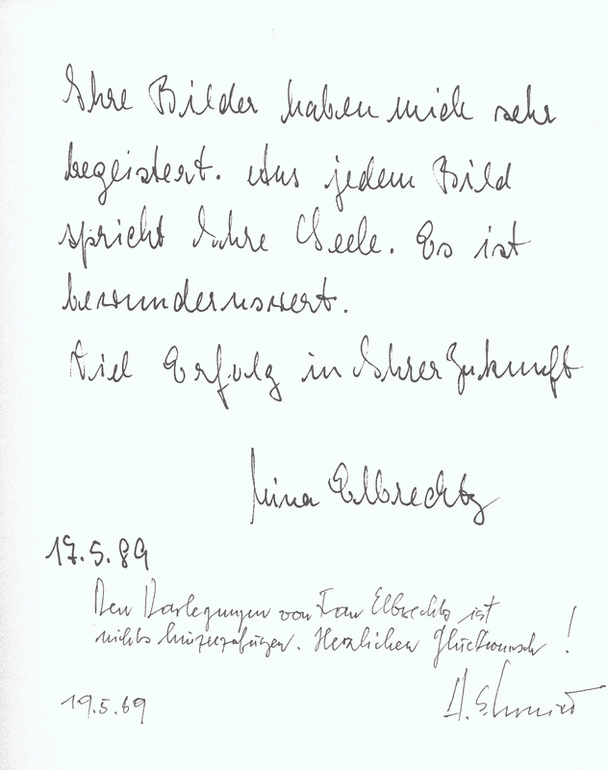 Ihre Bilder haben mich sehr
begeistert. Aus jedem Bild
spricht Ihre Seele. Es ist
bewundernswert.
Viel Erfolg in Ihrer Zukunft
Elbrechtz
17.5.89
Den Darlegungen von Frau Elbrechts ist
nichts hinzuzufügen. Herzlichen Glückwunsch!
19.5.89